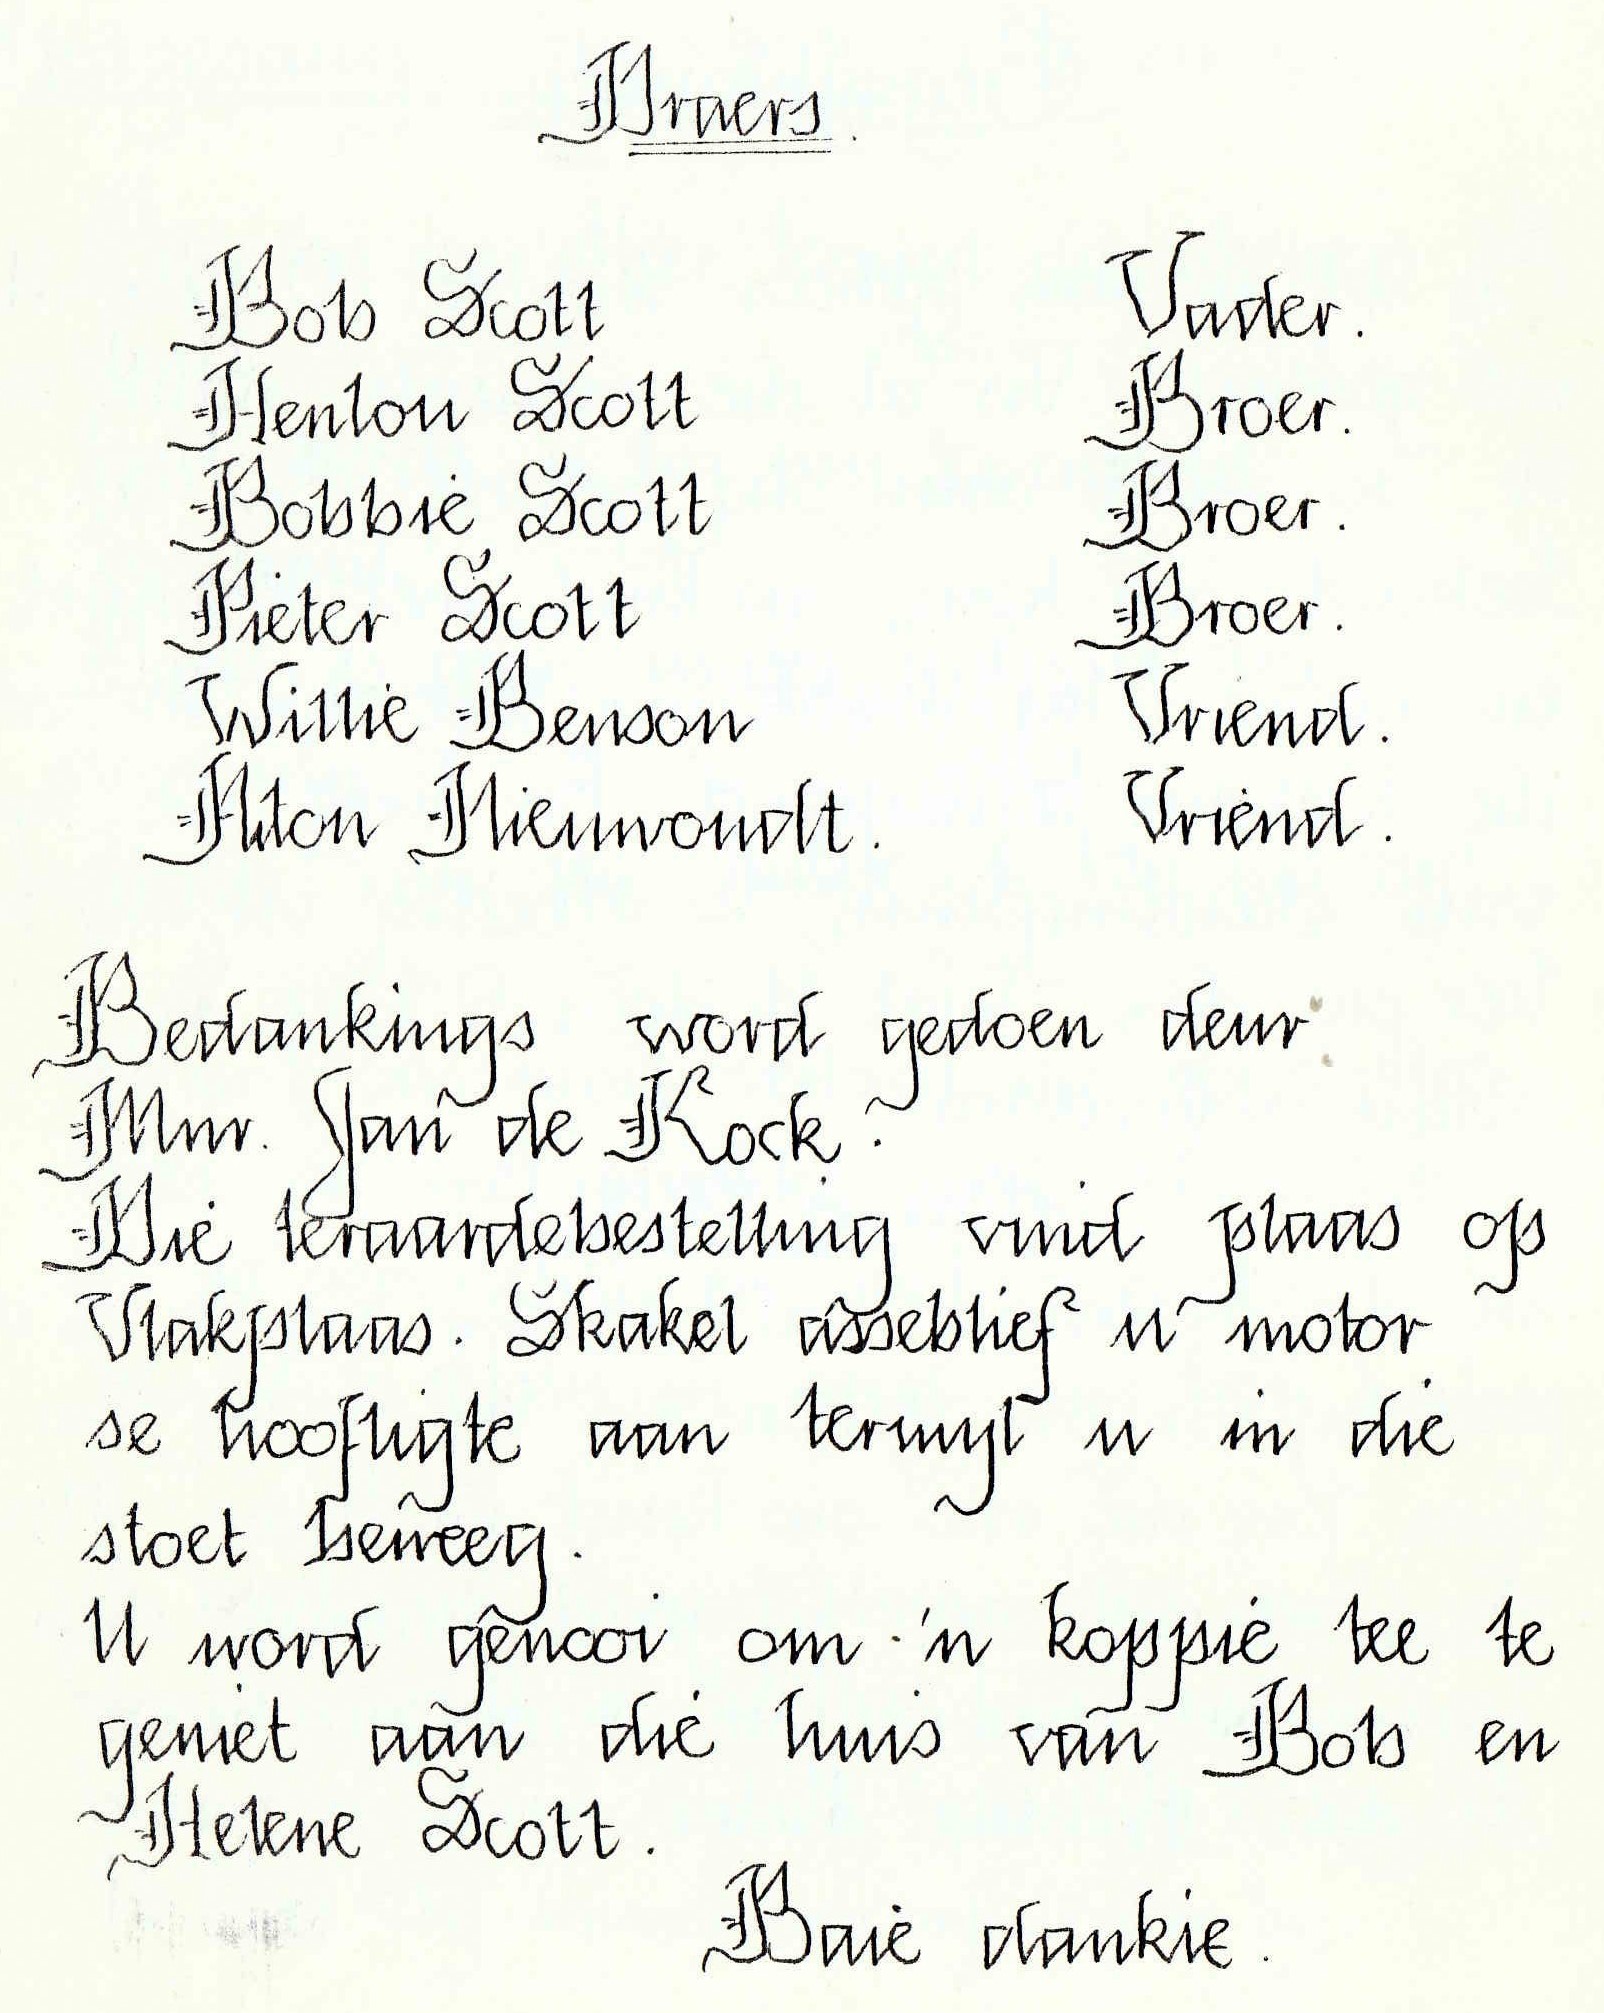 Draers.
Bob Scott Vader.
Henlou Scott Broer.
Bobbie Scott Broer.
Pieter Scott Broer.
Willie Benson Vriend.
Nieuwoudt. Vriend.
Bedankings word gedoen deur
Mnr. Jan de Kock.
Die teraardebestelling vind plaas op
Vlakplaas. Skakel asseblief u motor
se hoofligte aan terwyl u in die
stoet beweeg.
U word genooi om 'n koppie tee te
geniet aan die huis van Bob en
Helene Scott.
Baie dankie.